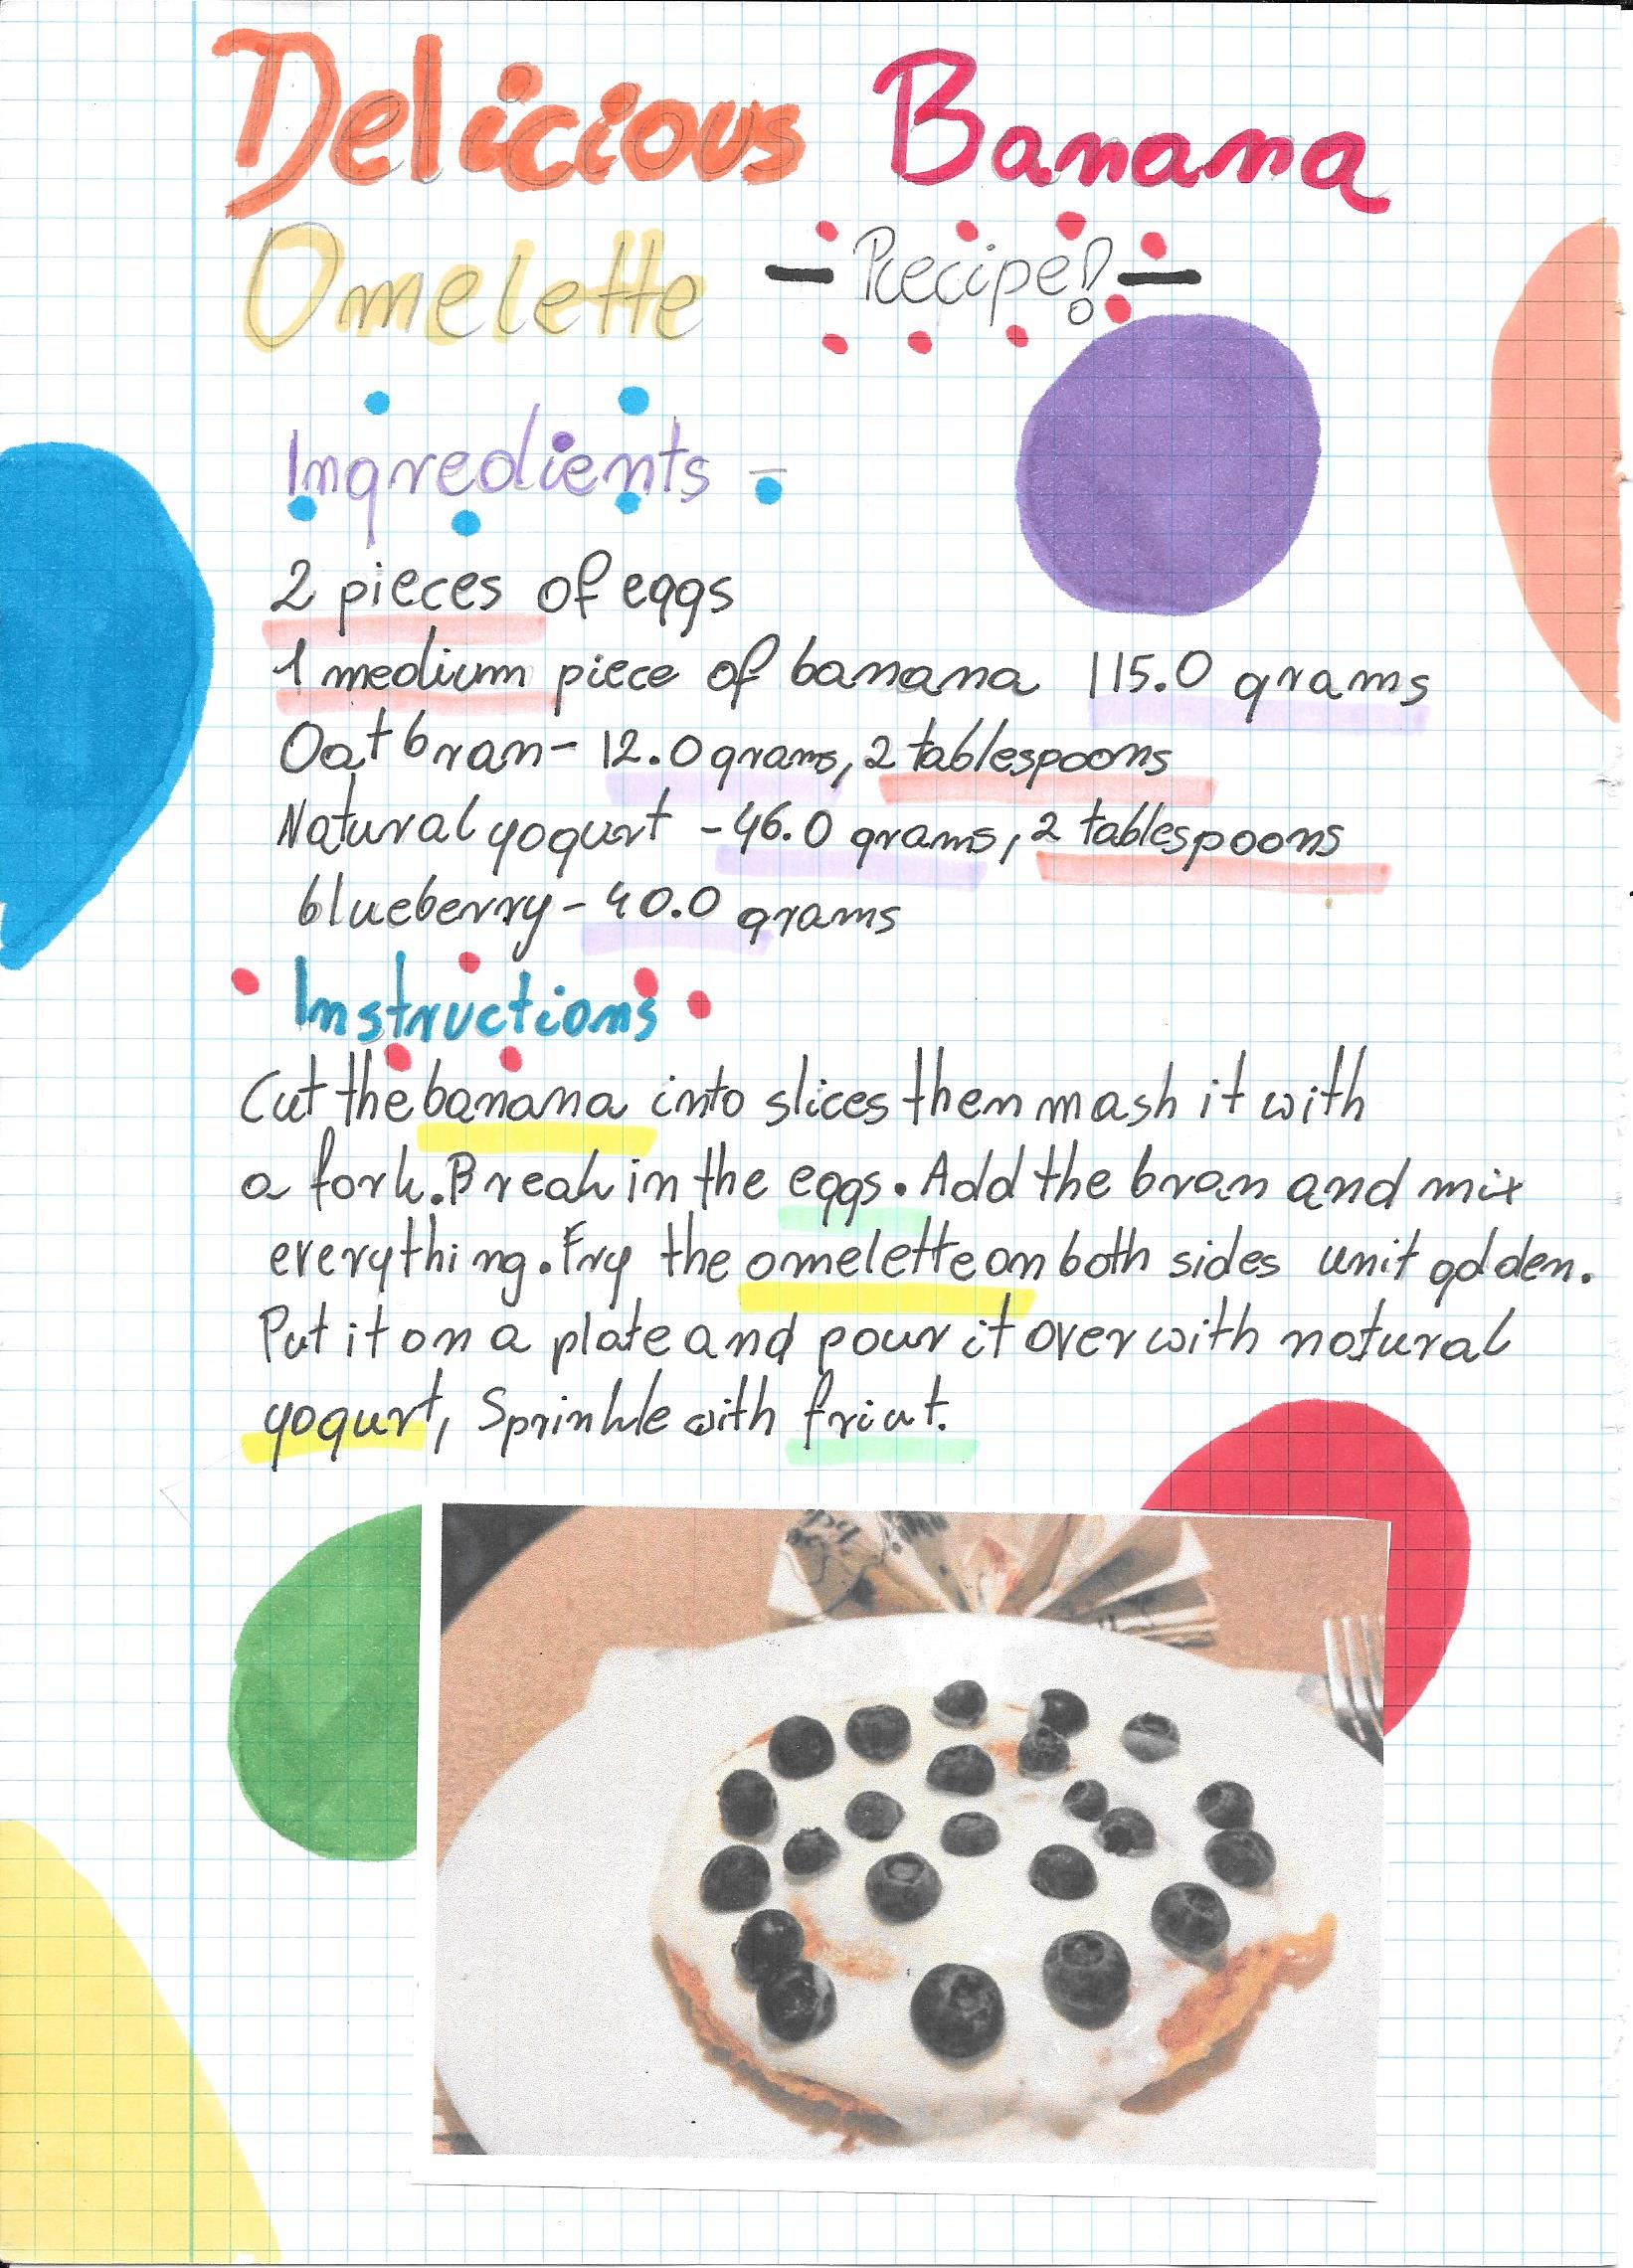 Delicious Banana
Omelette - Recipe! -
Ingredients -
2 pieces of eggs
1 medium piece of banana 115.0 grams
Oat bran - 12.0 grams, 2 tablespoons
Natural yogurt - 46.0 grams, 2 tablespoons
blueberry - 40.0 grams
Instructions
Cut the banana into slices then mash it with
a fork. Break in the eggs. Add the bran and mix
everything. Fry the omelette on both sides unit golden.
Put it on a plate and pour it over with natural
yogurt, Sprinkle with friut.